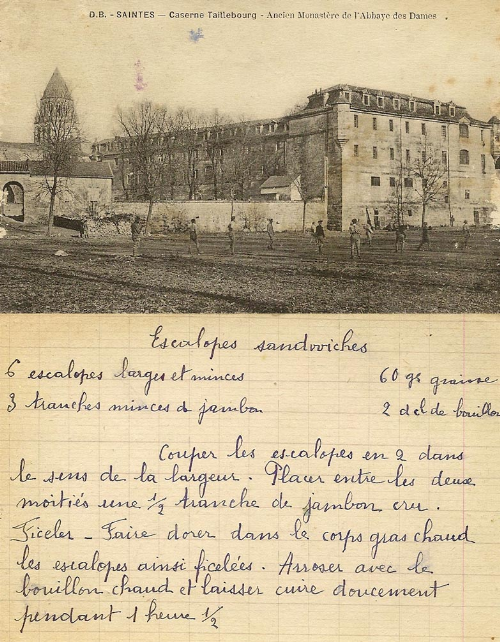 D.B. - SAINTES — Caserne Taillebourg - Ancien Monastère de l'Abbaye des Dames
Escalopes sandwiches
6 escalopes larges et minces 60 gr graisse
3 tranches minces de jambon 2 dcl de bouillon
Couper les escalopes en 2 dans
le sens de la largeur. Placer entre les deux
moitiés une 1/2 tranche de jambon cru.
Ficeler - Faire dorer dans le corps gras chaud
les escalopes ainsi ficelées. Arroser avec le
bouillon chaud et laisser cuire doucement
pendant 1 heure 1/2